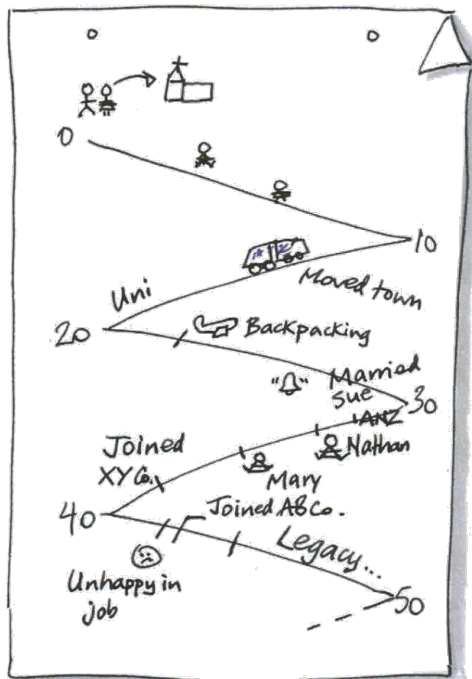 0
10
Moved town
Uni
20
Backpacking
Married
Sue
30
ANZ
Nathan
Joined
XY Co.
Mary
Joined ABCo.
40
Legacy...
Unhappy in
job
50